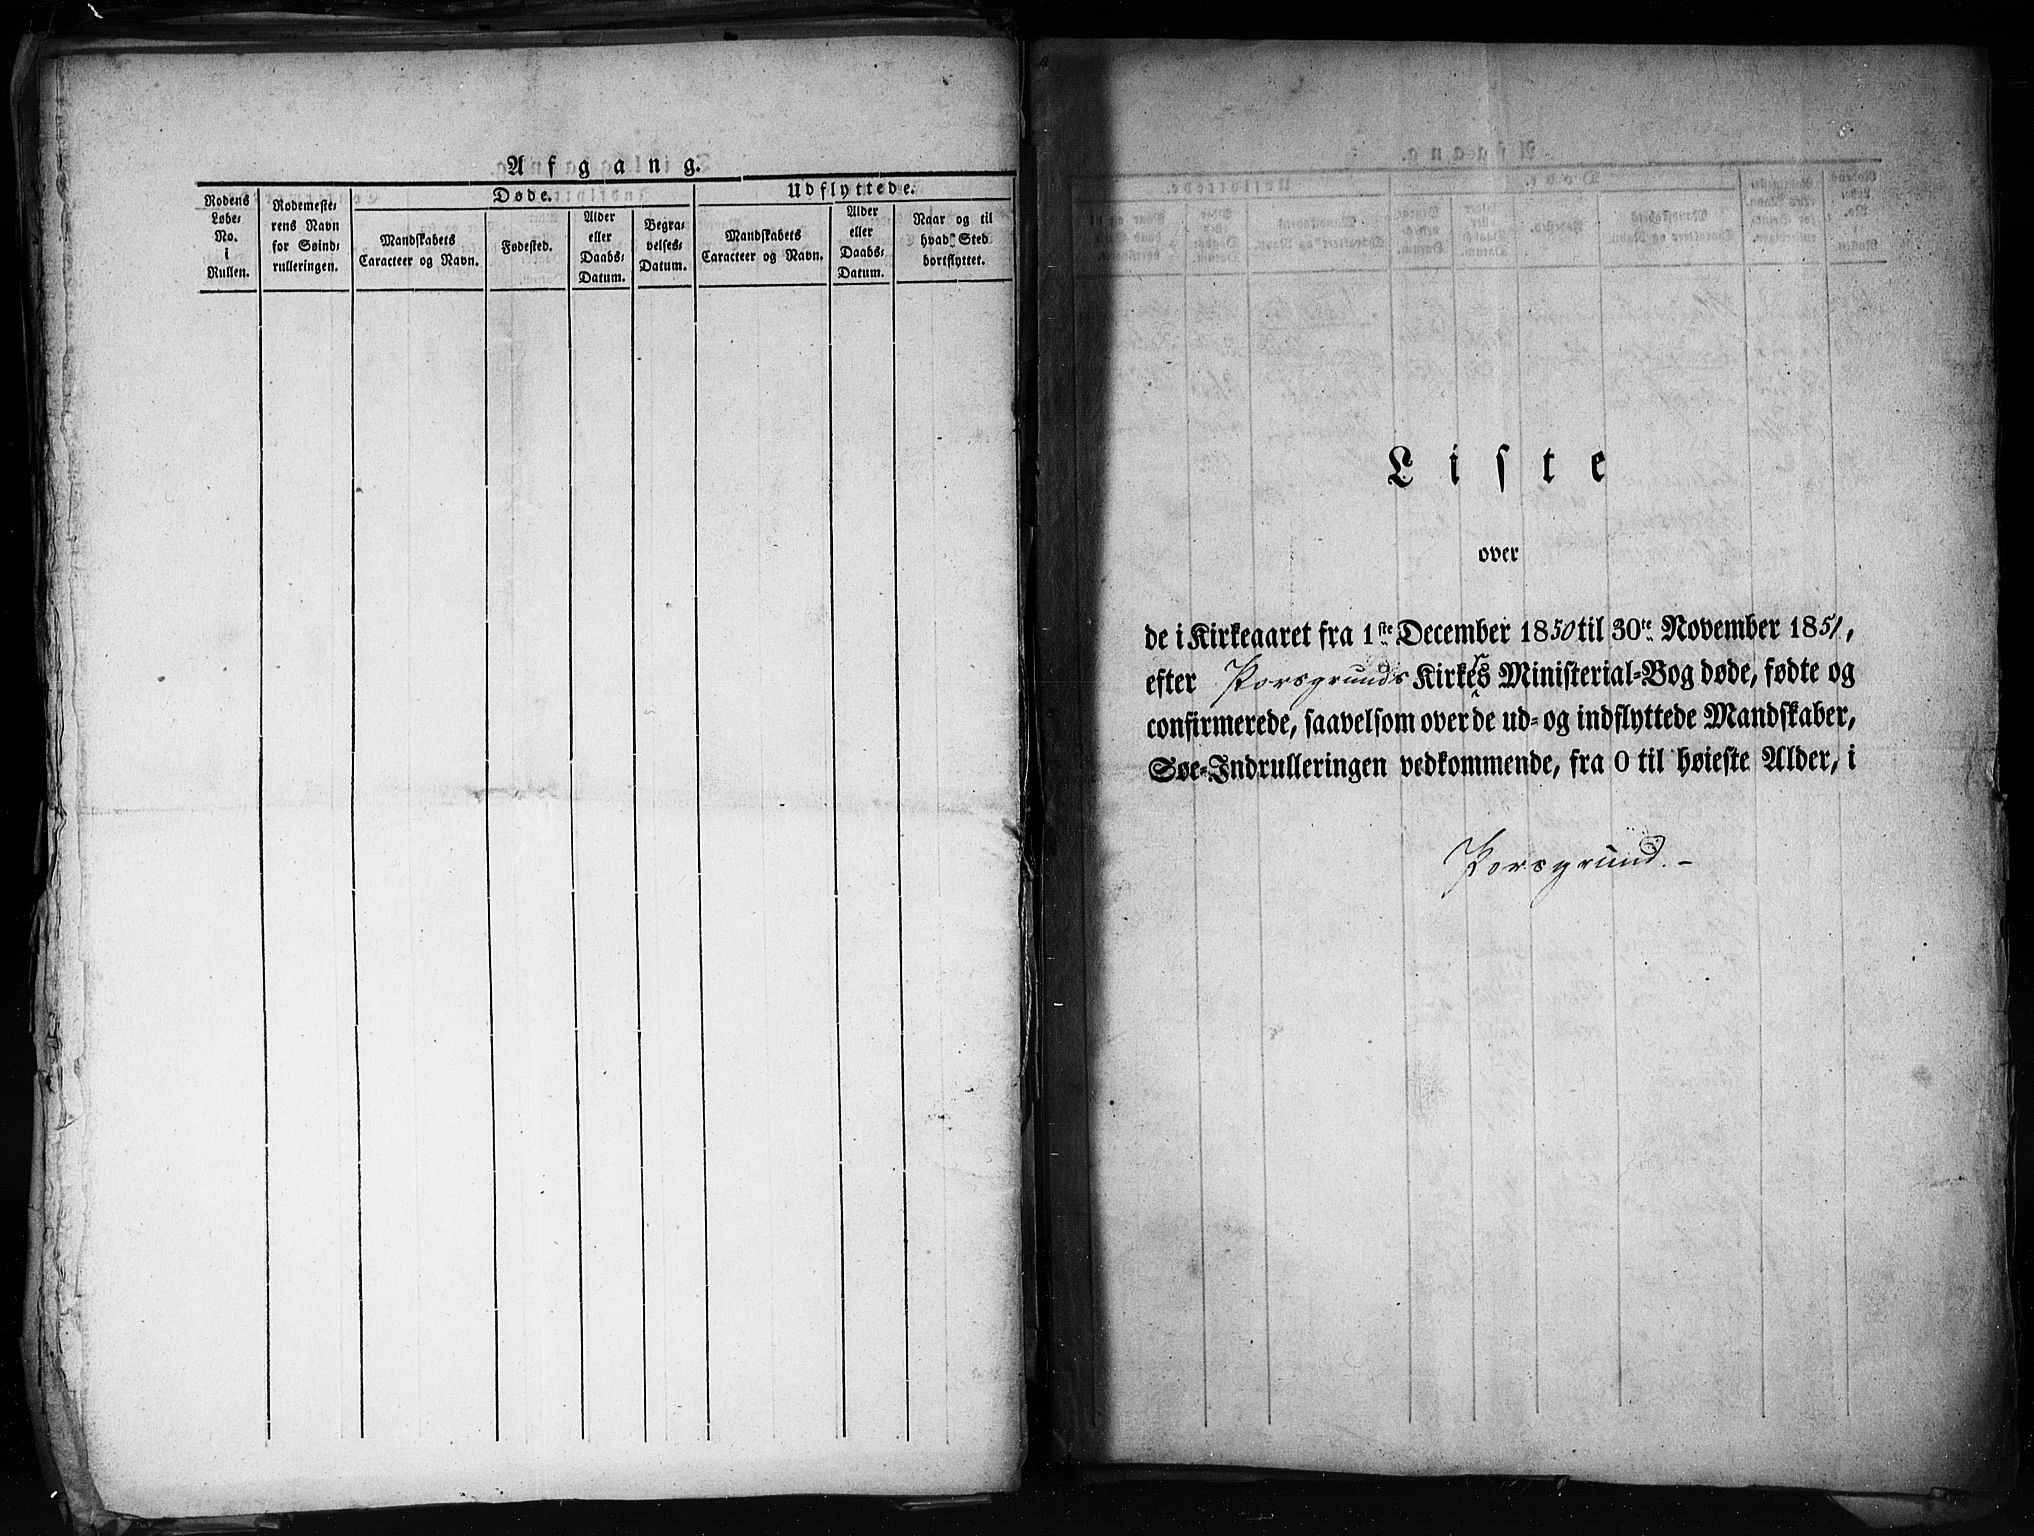 Afgang.
Døde.
Udflyttede.
Rodens
Løbe-
No.
i
Rullen.
Rodemeste-
rens Navn
for Søind-
rulleringen.
Mandskabets
Caracteer og Navn.
Fødested.
Alder
eller
Daabs-
Datum.
Begra-
velses-
Datum.
Mandskabets
Caracteer og Navn.
Alder
eller
Daabs-
Datum.
Naar og til
hvad Sted
bortflyttet.
Liste
over
de i Kirkeaaret fra 1ste December 1850 til 30te November 1851,
efter Porsgrunds Kirkes Ministerial-Bog døde, fødte og
confirmerede, saavelsom over de ud- og indflyttede Mandskaber,
Søe-Indrulleringen vedkommende, fra 0 til høieste Alder, i
Porsgrund.-